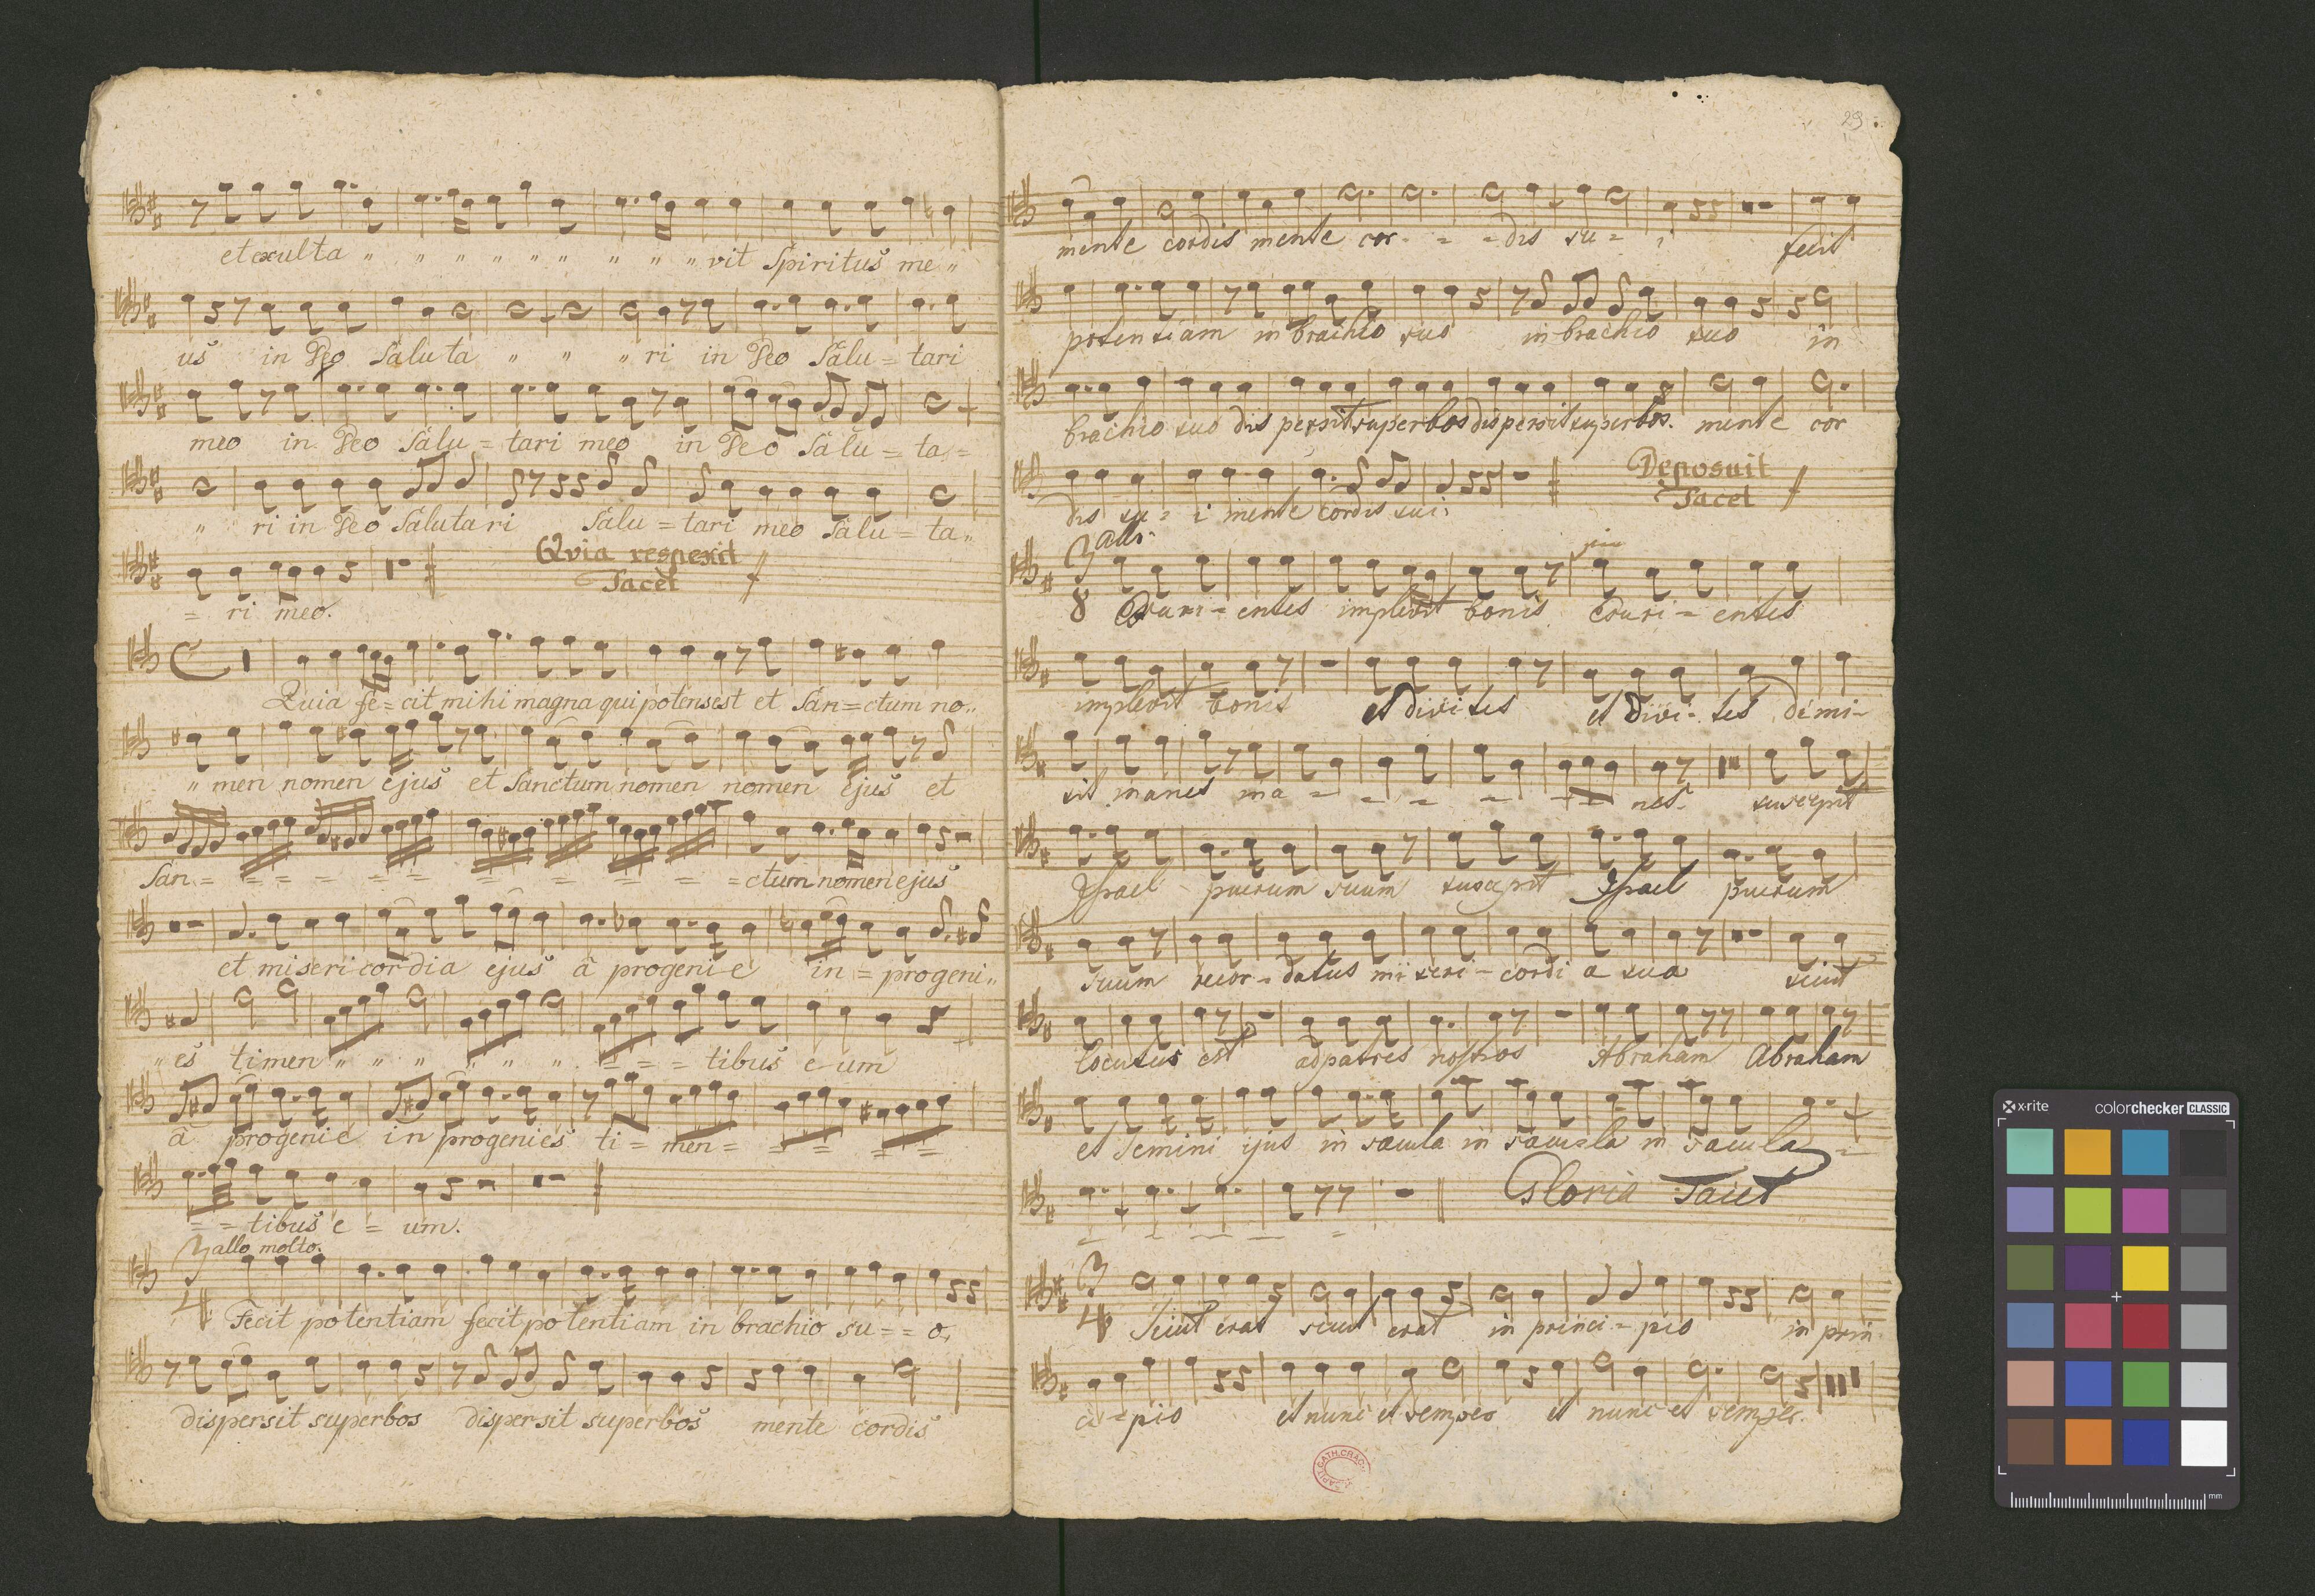 et exulta " " " " " " " " " vit Spiritus me "
us in Deo Saluta " " " ri in Deo Salu = tari
meo in Deo Salu = tari meo in Deo Salu = ta =
" ri in Deo Salutari Salu = tari meo Salu = ta "
Qvia respexit
Tacet
= ri meo.
Quia fe = cit mihi magna qui potens est et San = ctum no "
" men nomen ejus et Sanctum nomen nomen ejus et
San = = = = = = = = = = = ctum nomen ejus
et misericordia ejus à progenie in = progeni "
" es timen " " " " " " = = = tibus e - um
à progenie in progenies ti = men = = = = =
= = tibus e = um.
3 allo molto.
4 Fecit potentiam fecit potentiam in brachio su = = o,
dispersit superbos dispersit superbos mente cordis
29
mente cordis mente cor - = = dis su = i fecit
potentiam in brachio suo in brachio suo in
brachio suo dispersit superbos dispersit superbos. mente cor
Deposuit
Tacet
dis su = i mente cordis sui.
3 all:
8 Esuri = entes implevit bonis Esuri = entes
implevit bonis et divites et divi - tes dimi -
sit inanes ina = = = = = = nes - suscepit
Israel puerum suum suscepit Israel puerum
suum recor - datus miseri - cordi a sua sicut
locutus est ad patres nostros Abraham Abraham
et Semini ejus in sæcula in sæcula in sæcula =
Gloria Tacet
3
4 Sicut erat sicut erat in princi = pio in prin -
ci = pio et nunc et semper et nunc et semper.
CAPIT. CATH. CRAC.
x-rite
colorchecker CLASSIC
mm